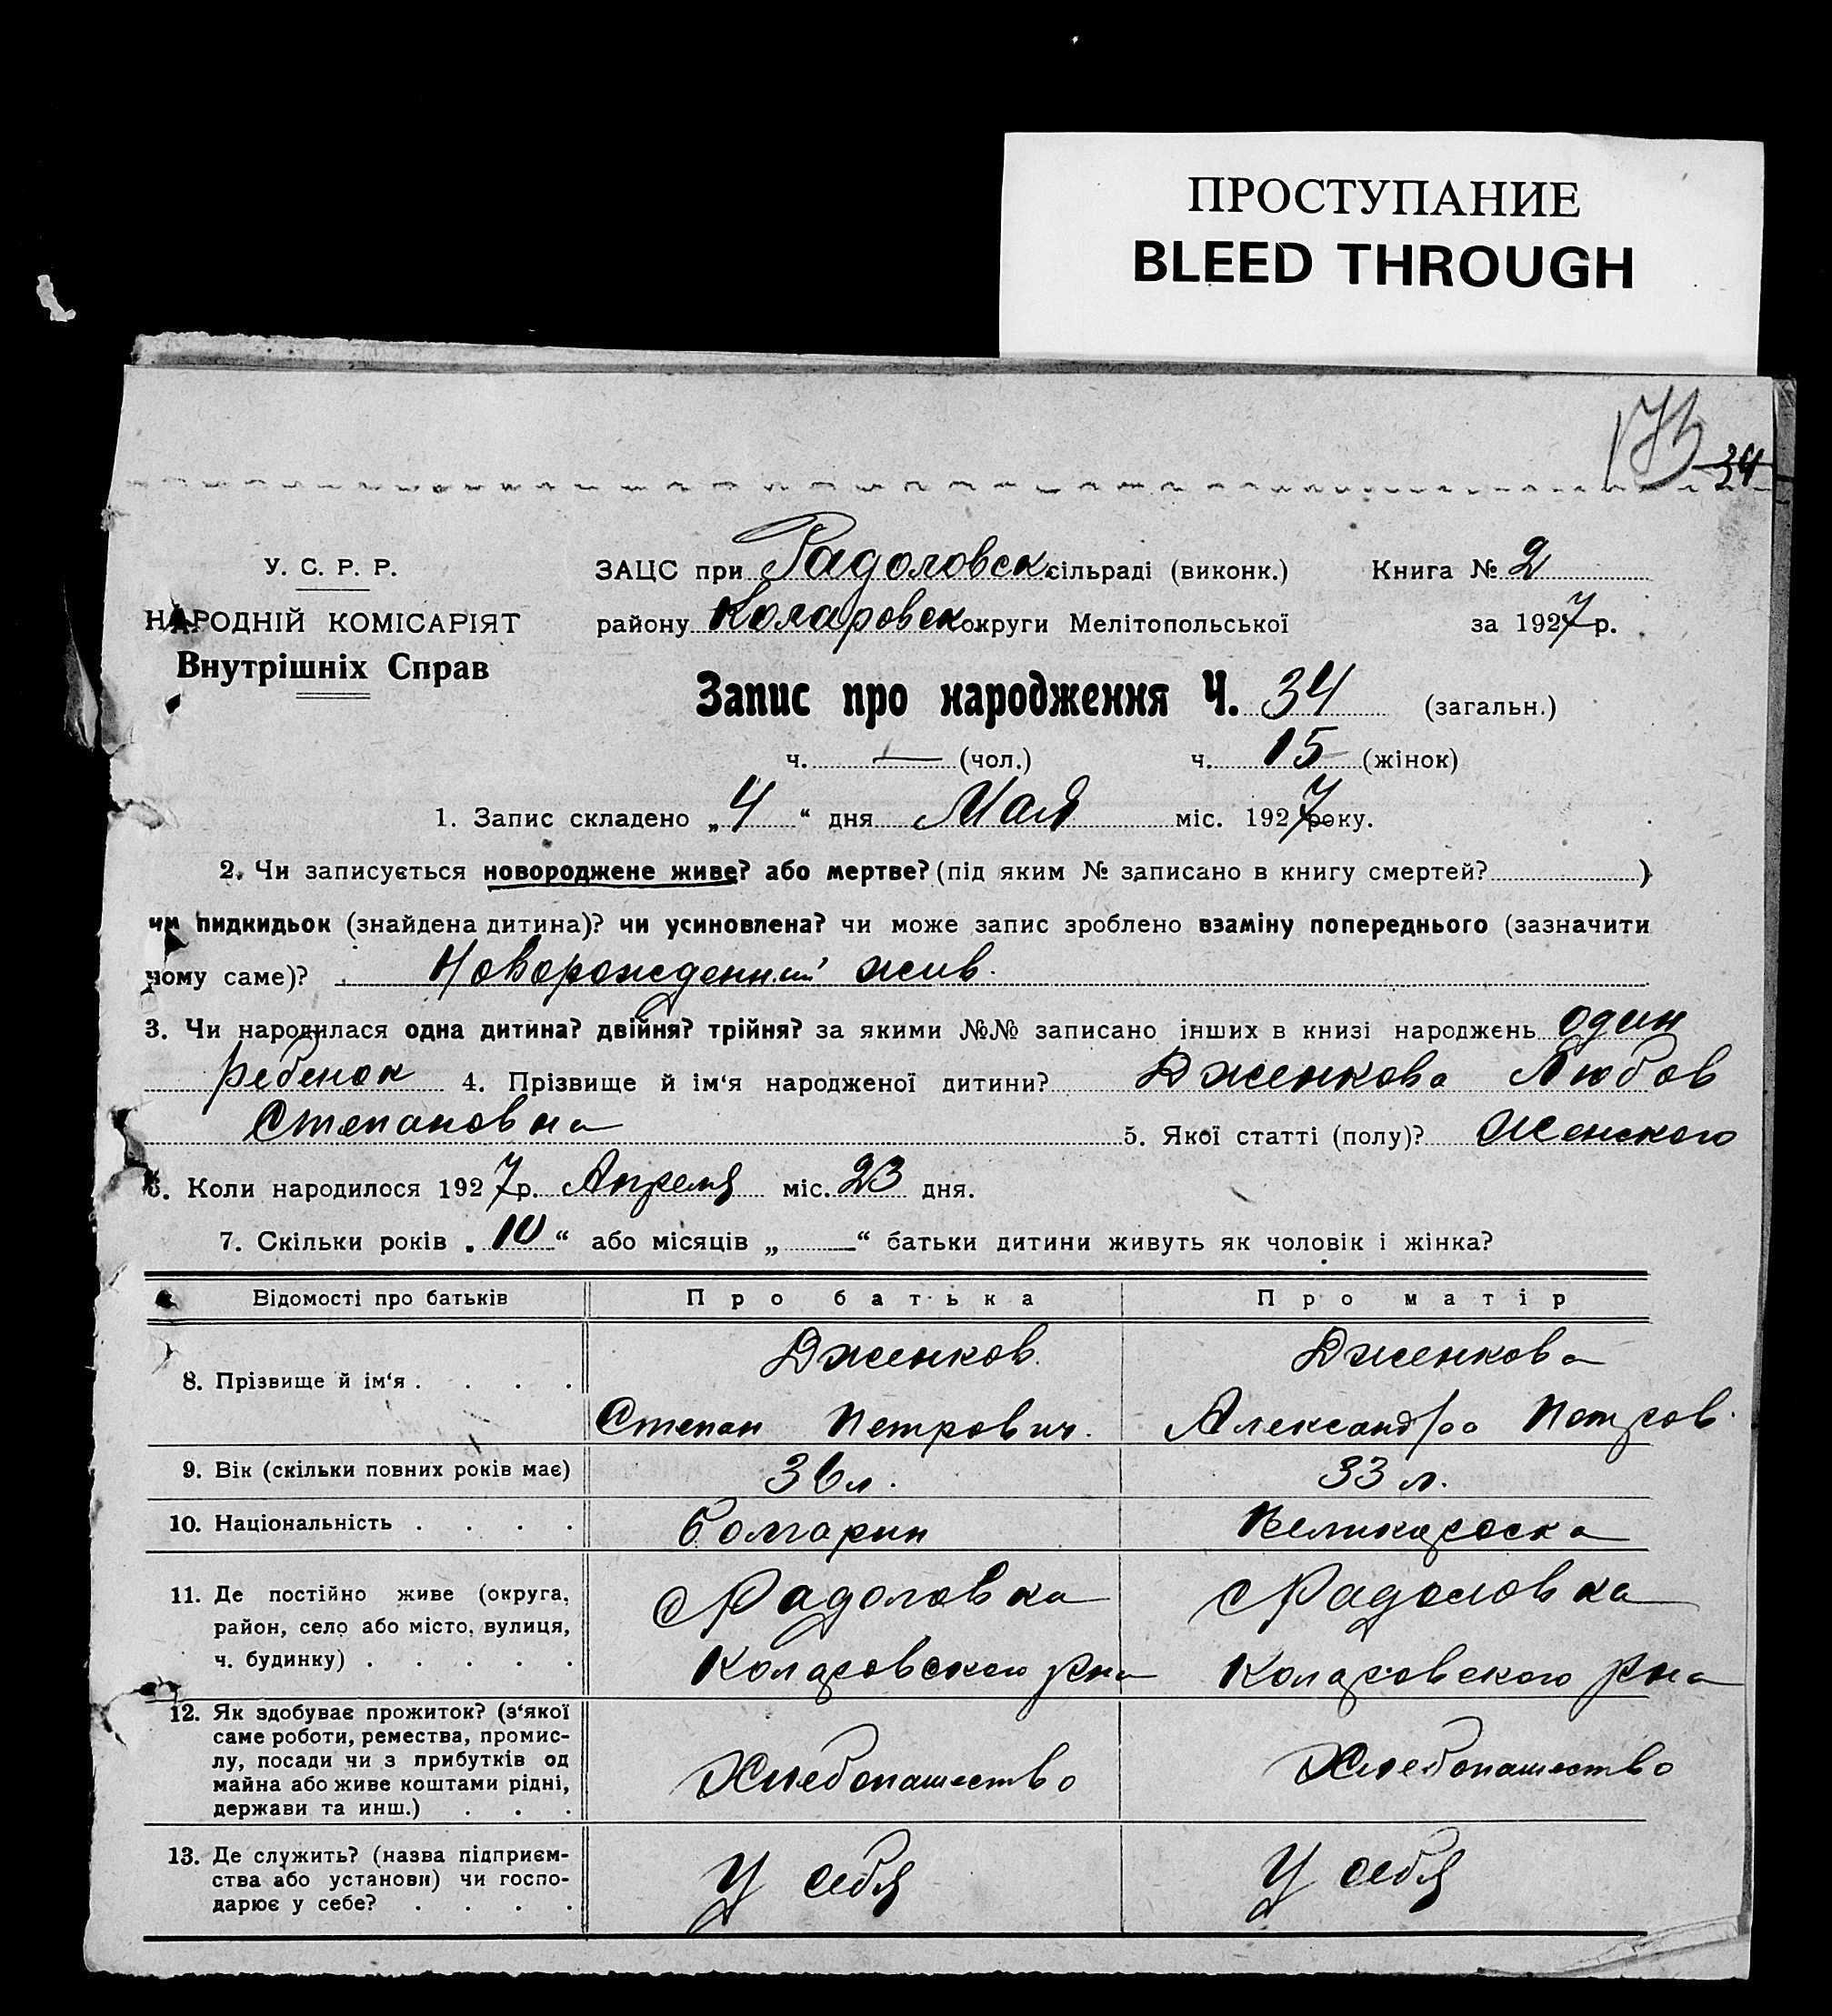 ПРОСТУПАНИЕ
BLEED THROUGH
34
У. С. Р. Р.
НАРОДНІЙ КОМІСАРІЯТ
Внутрішніх Справ
ЗАЦС при Радоловск. сільраді (виконк.) Книга № 2
району Коларовск. округи Мелітопольської за 1927 р.
Запис про народження Ч. 34 (загальн.)
ч. — (чол.) ч. 15 (жінок)
1. Запис складено „4“ дня Мая міс. 1927 року.
2. Чи записується новороджене живе? або мертве? (під яким № записано в книгу смертей? )
чи пидкидьок (знайдена дитина)? чи усиновлена? чи може запис зроблено взаміну попереднього (зазначити
чому саме)? Новорожденный жив.
3. Чи народилася одна дитина? двійня? трійня? за якими №№ записано інших в книзі народжень один
ребенок 4. Прізвище й ім‘я народженої дитини? Дженкова Любов
Степановна 5. Якої статті (полу)? Женского
6. Коли народилося 1927 р. Апреля міс. 23 дня.
7. Скільки років „10“ або місяців „ “ батьки дитини живуть як чоловік і жінка?
Відомості про батьків Про батька Про матір
8. Прізвище й ім‘я . . . . Дженков Степан Петрович. Дженкова Александра Петров.
9. Вік (скільки повних років має) 36 л. 33 л.
10. Національність . . . . Болгарин Великоросска
11. Де постійно живе (округа,
район, село або місто, вулиця,
ч. будинку) . . . . .
с Радоловка
Коларовского рна
с Радоловка
Коларовского рна
12. Як здобуває прожиток? (з‘якої
саме роботи, ремества, промис-
лу, посади чи з прибутків од
майна або живе коштами рідні,
держави та инш.) . . .
Хлебопашество
Хлебопашество
13. Де служить? (назва підприєм-
ства або установи) чи госпо-
дарює у себе? . . . .
У себя
У себя